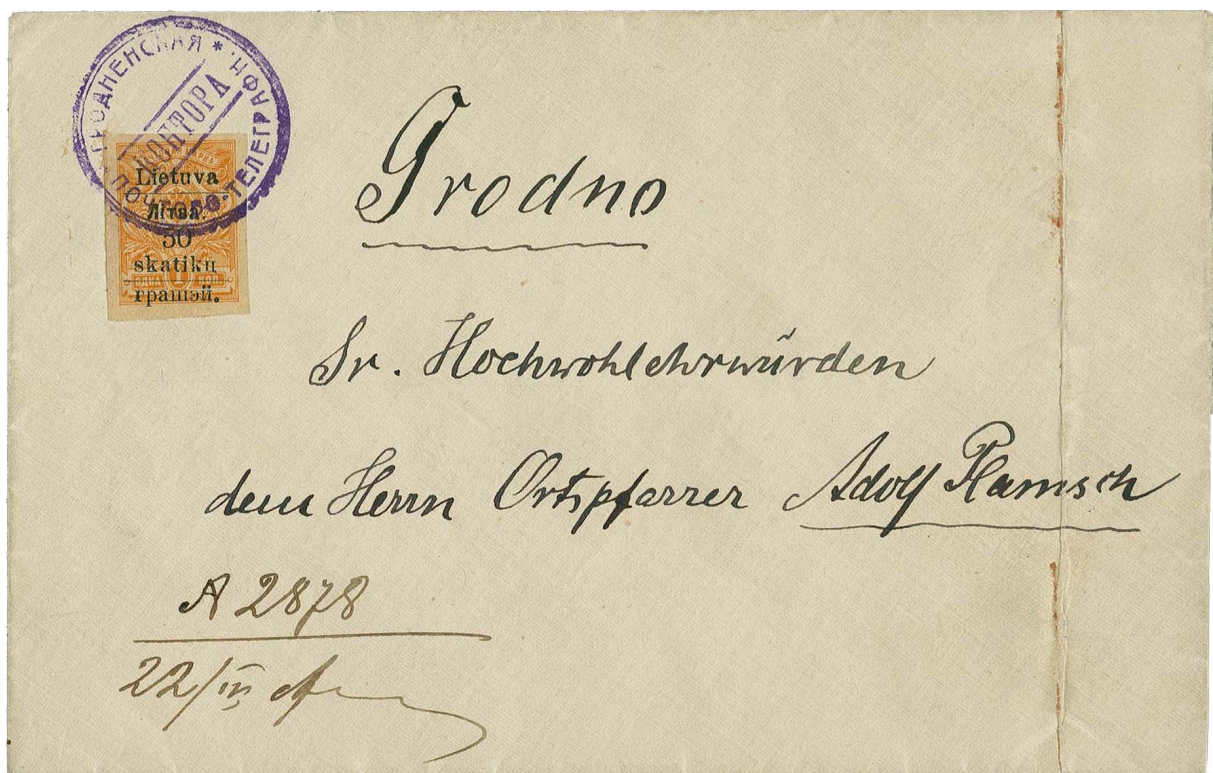 ГРОДНЕНСКАЯ * ПОЧТОВО-ТЕЛЕГРАФН.
КОНТОРА
Lietuva
Літва.
50
skatikų
грашэй.
ОДНА 1 КОП.
Grodno
Sr. Hochwohlehrwürden
dem Herrn Ortspfarrer Adolf Plamsch
A 2878
22/IV